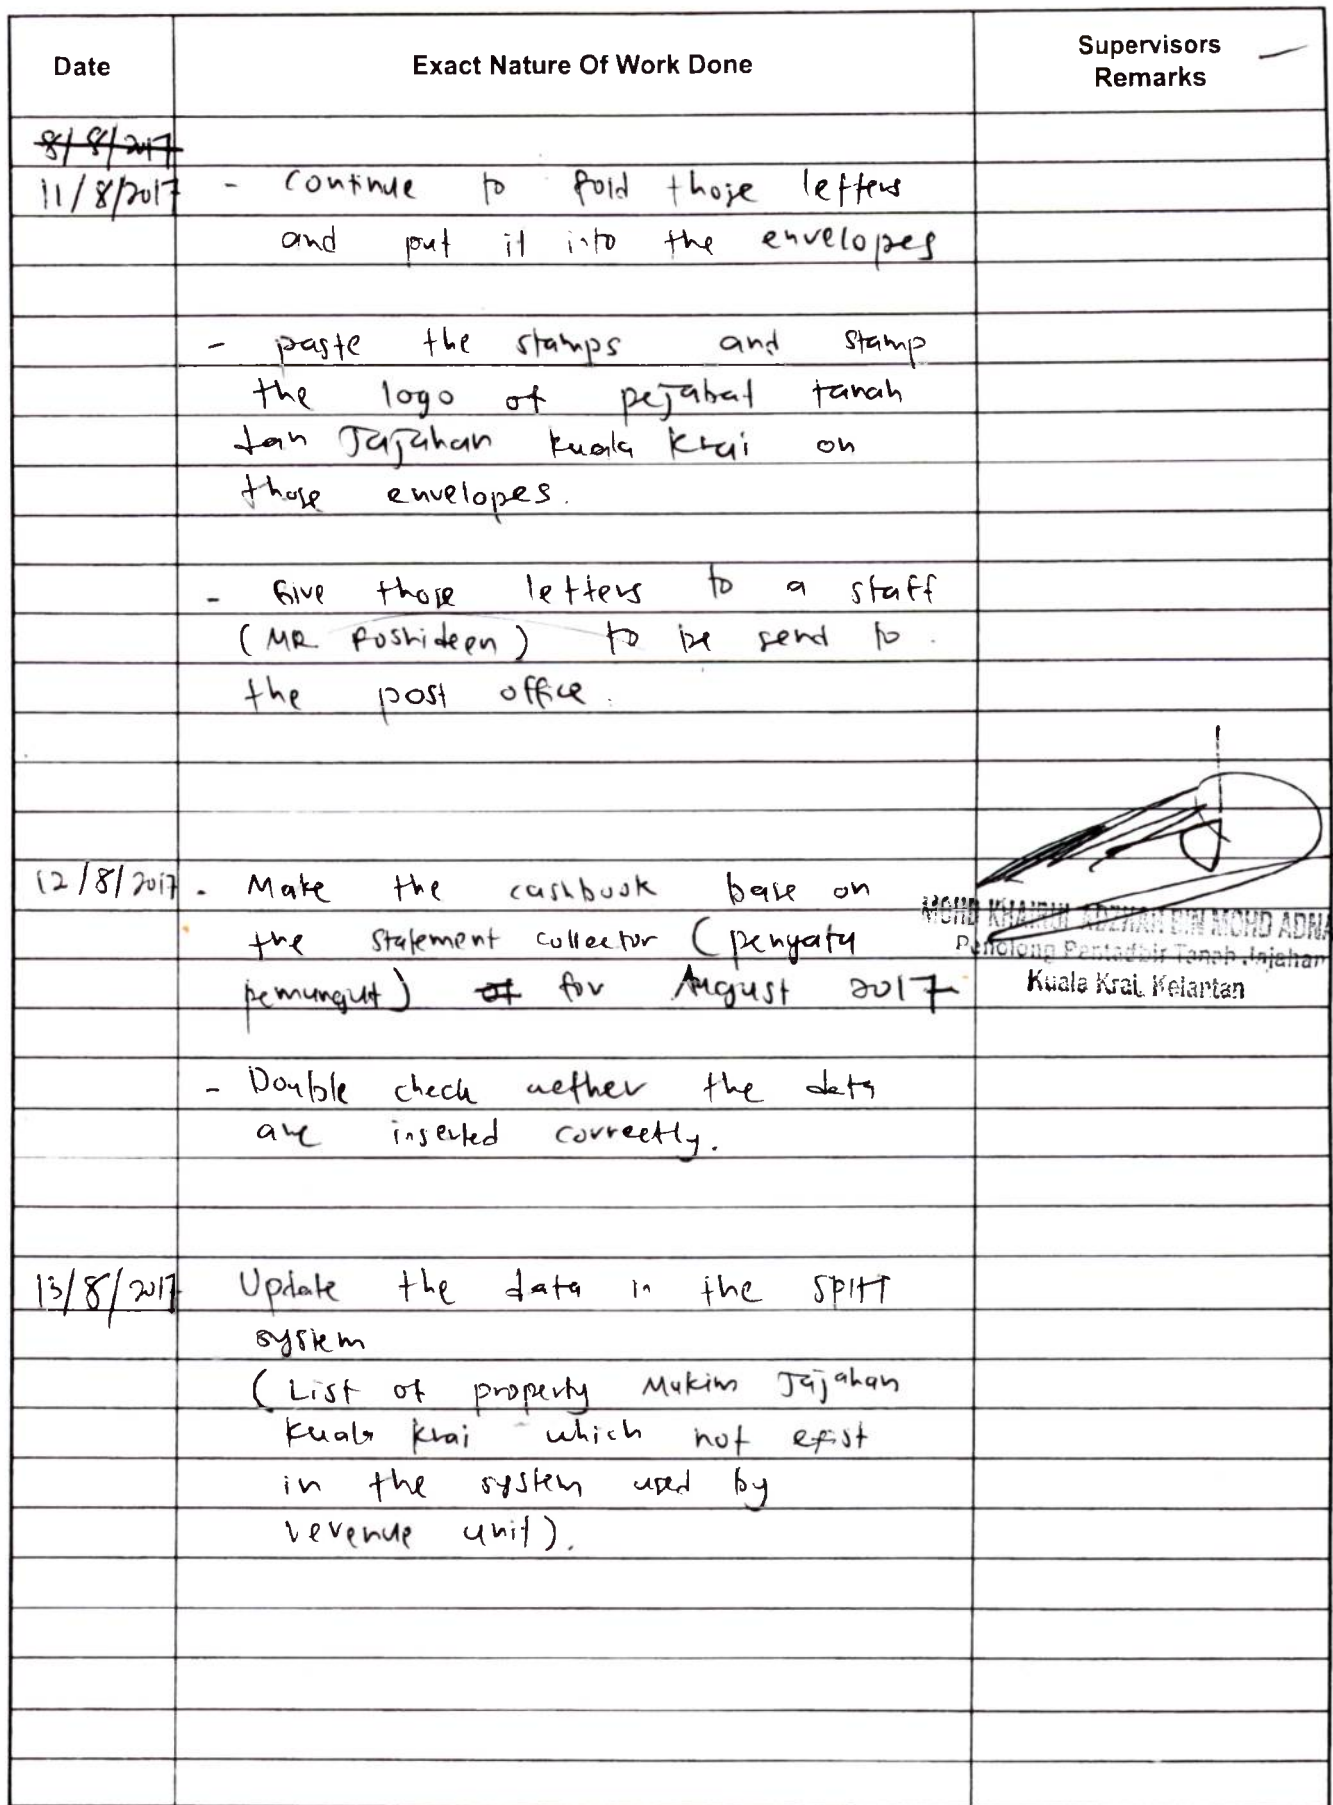 Date Exact Nature Of Work Done Supervisors
Remarks
8/8/2017
11/8/2017 - Continue to fold those letters
and put it into the envelopes
- paste the stamps and stamp
the logo of pejabat tanah
dan Jajahan Kuala Krai on
those envelopes.
- Give those letters to a staff
(MR Roshideen) to be send to
the post office.
12/8/2017 - Make the cashbook base on
the statement collector (penyata
pemungut) of for August 2017
MOHD KHAIRUL ADZHAN BIN MOHD ADNA
Penolong Pentadbir Tanah Jajahan
Kuala Krai, Kelantan
- Double check wether the data
are inserted correctly.
13/8/2017 Update the data in the SPHT
system
(List of property Mukim Jajahan
Kuala Krai which not exist
in the system used by
revenue unit).